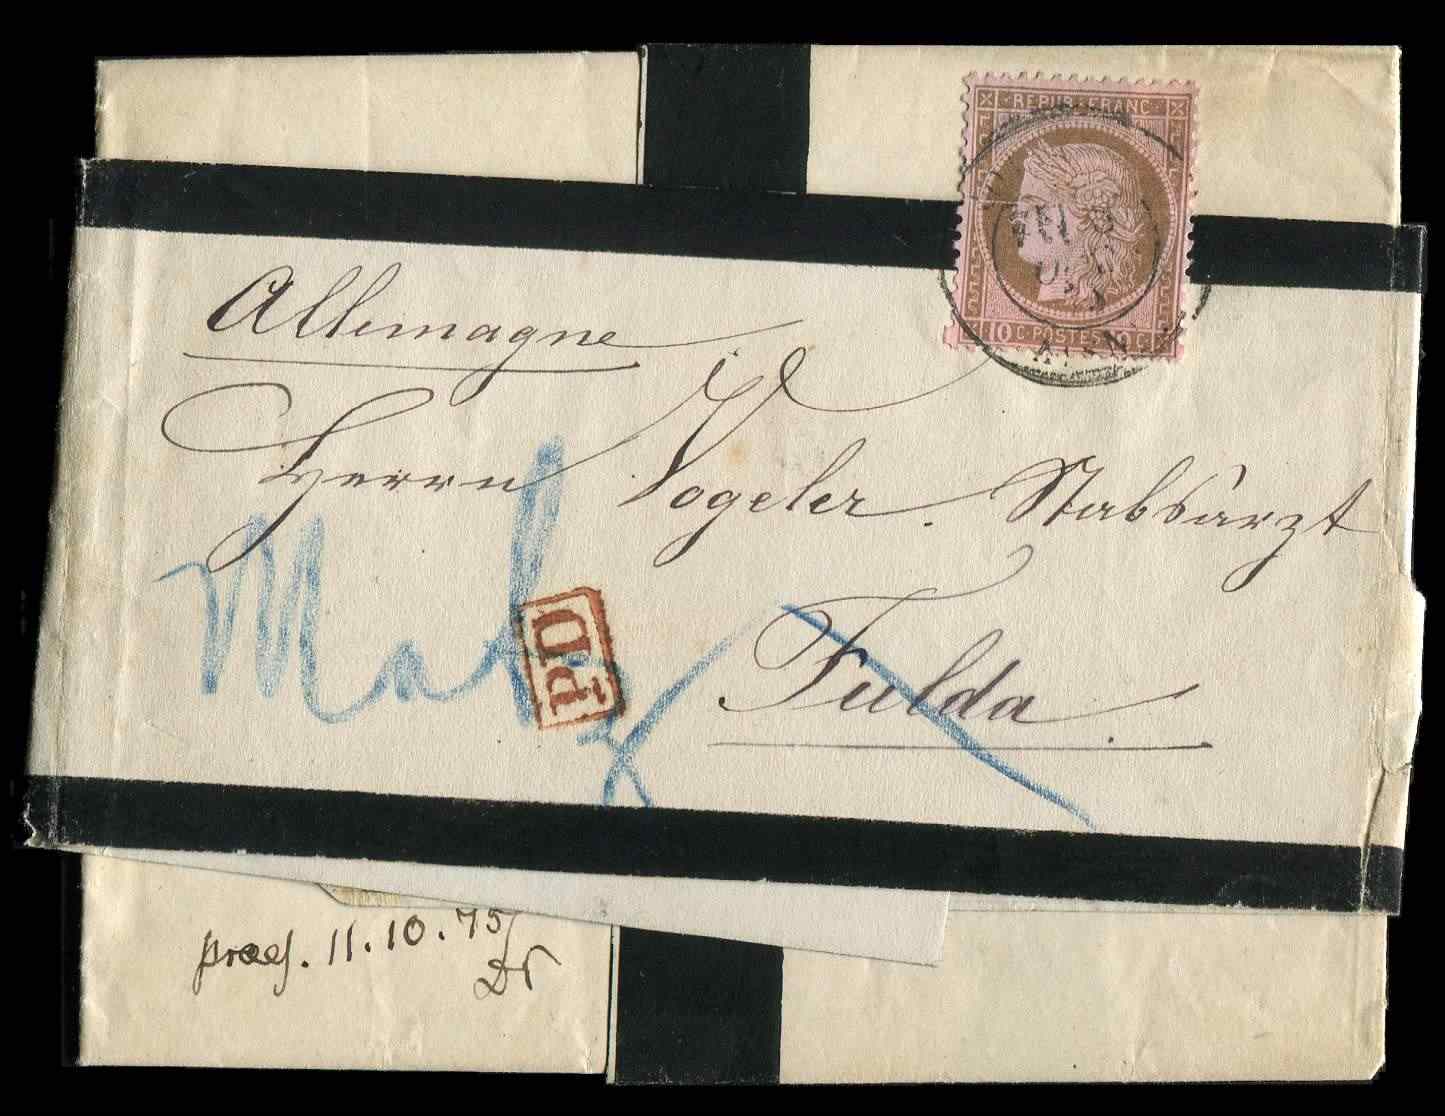 REPUB · FRANC ·
10 C · POSTES · 10 C
Allemagne
Herrn Vogeler. Stabsarzt
Fulda
PD
praes. 11.10.75